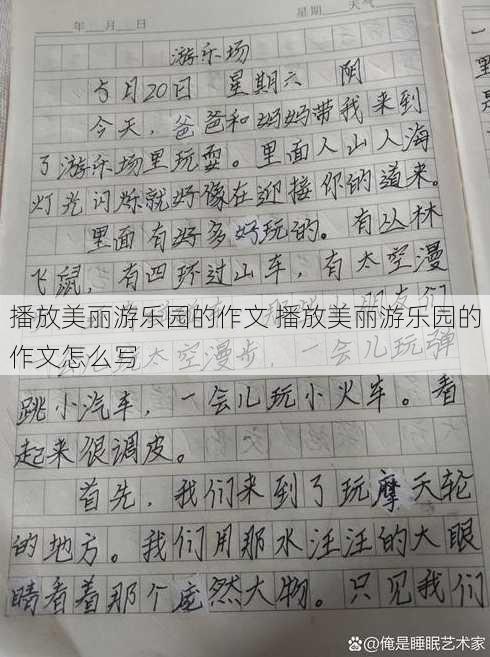 年 月 日 星期 天气
游乐场
5月20日 星期六 阴
今天，爸爸和妈妈带我来到
了游乐场里玩耍。里面人山人海
灯光闪烁就好像在迎接你的道来。
里面有好多好玩的。有丛林
飞鼠，有四环过山车，有太空漫
播放美丽游乐园的作文 播放美丽游乐园的
作文怎么写
太空漫步，一会儿玩弹
跳小汽车，一会儿玩小火车。看
起来很调皮。
首先，我们来到了玩摩天轮
的地方。我们用那水汪汪的大眼
睛看着那个庞然大物。只见我们
百家号@俺是睡眠艺术家